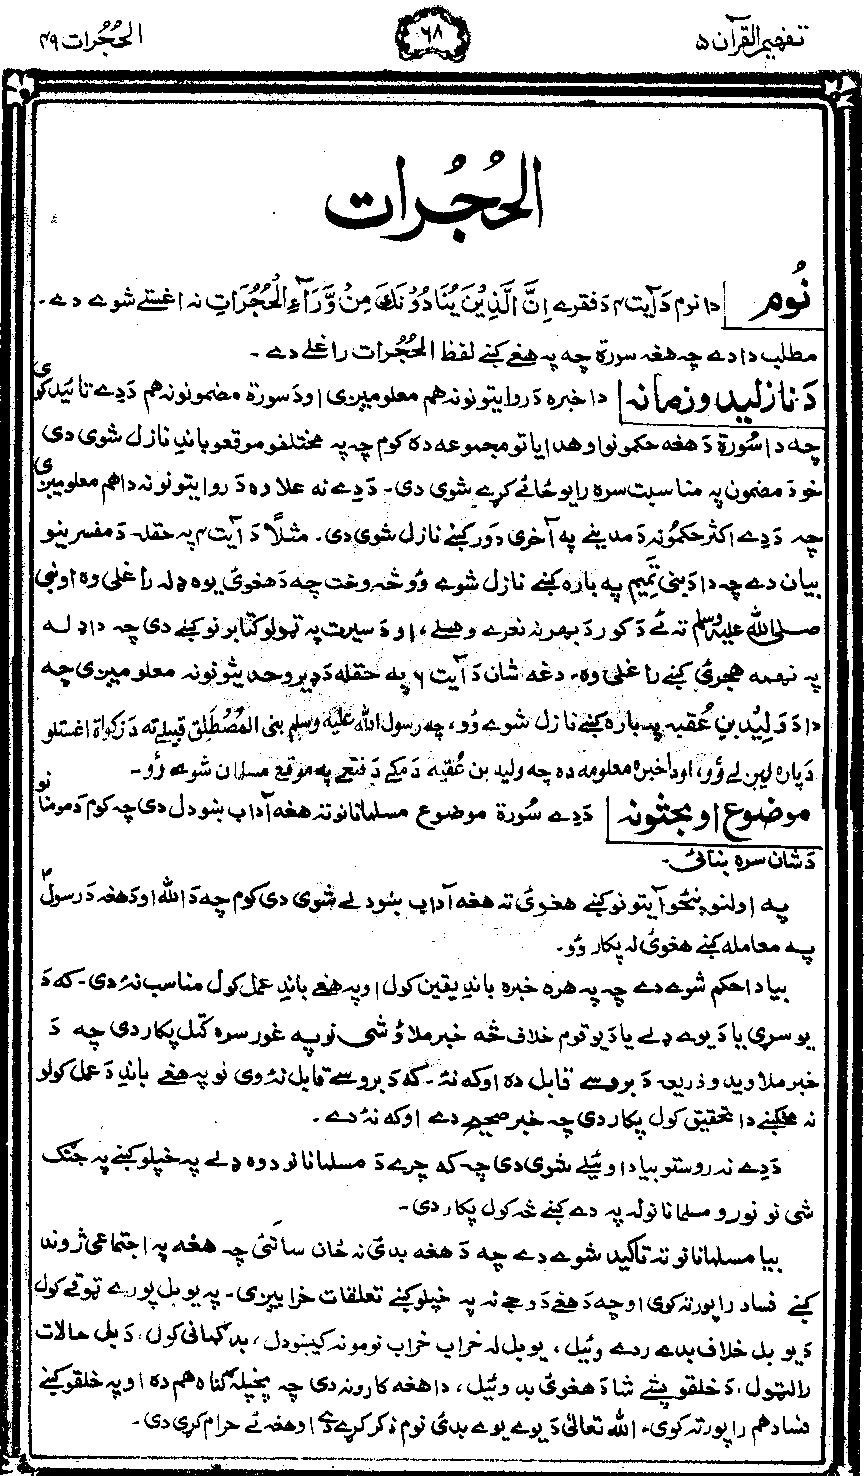 تفهیم القرآن ۵
۶۸
الحُجُرات ۴۹
الحُجُرات
نُوم دا نوم دَ آیت ۴ دَ فقرے اِنَّ الَّذِیْنَ یُنَادُوْنَكَ مِنْ وَّرَآءِ الْحُجُرَاتِ نہ اغستے شوے دے۔
مطلب دا دے چہ ھغہ سورۃ چہ پہ ھغے کښے لفظ الحُجُرات راغلے دے۔
دَ نازلیدو زمانہ دا خبرہ دَ روایتونو نہ ھم معلومیږی او دَ سورۃ مضمونونہ ھم دَ دے تائید کوی
چہ دا سُورۃ دَ ھغہ حکمونو او ھدایاتو مجموعہ دہ کوم چہ پہ مختلفو موقعو باندِ نازل شوی دی
خو دَ مضمون پہ مناسبت سرہ را یو ځائے کړے شوی دی۔ دَ دے نہ علاوہ دَ روایتونو نہ دا ھم معلومیږی
چہ دَ دے اکثر حکمُونہ دَ مدینے پہ آخری دَور کښے نازل شوی دی۔ مثلاً دَ آیت ۴ پہ حقلہ دَ مفسرینو
بیان دے چہ دا دَ بنی تمیم پہ بارہ کښے نازل شوے وُو څہ وخت چہ دَ ھغوئ یوہ ډلہ راغلی وہ او نبی
صلی اللہ علیہ وسلم تہ ئے دَ کور دَ بھر نہ نعرے وھلے، او دَ سیرت پہ ټولو کتابونو کښے دی چہ دا ډلہ
پہ نهمہ هجرئ کښے راغلی وہ۔ دغہ شان دَ آیت ۶ پہ حقلہ دَ ډیرو حدیثونو نہ معلومیږی چہ
دا دَ وَلِیْد بنِ عُقبہ پہ بارہ کښے نازل شوے وُو، چہ رسول اللہ علیہ وسلم بنی المُصْطَلِق قبیلے تہ دَ زکواۃ اغستلو
دَ پارہ لیږلے وُو، او دا خبرہ معلومہ دہ چہ ولید بن عُقبہ دَ مکے دَ فتحے پہ موقع مسلمان شوے وُو۔
موضوع او بحثونہ دَ دے سُورۃ موضوع مسلمانانو تہ ھغہ آداب ښودل دی چہ کوم دَ مومنانو
دَ شان سرہ ښائی۔
پہ اولنو پنځو آیتونو کښے ھغوئ تہ ھغہ آداب ښودلے شوی دی کوم چہ دَ اللہ او دَ ھغہ دَ رسولؐ
پہ معاملہ کښے ھغوئ لہ پکار وُو۔
بیا دا حکم شوے دے چہ پہ ھرہ خبرہ باندِ یقین کول او پہ ھغے باندِ عمل کول مناسب نہ دی۔ کہ دَ
یو سړی یا دَ یوے ډلے یا دَ یو قوم خلاف څہ خبر ملاؤ شی نو پہ غور سرہ کتل پکار دی چہ دَ
خبر ملاویدو ذریعہ دَ بروسے قابل دہ اوکہ نہ۔ کہ دَ بروسے قابل نہ وی نو پہ ھغے باندِ دَ عمل کولو
نہ مخکښے دا تحقیق کول پکار دی چہ خبر صحیح دے اوکہ نہ دے۔
دَ دے نہ روستو بیا دا وئیلے شوی دی چہ کہ چرے دَ مسلمانانو دوہ ډلے پہ خپلو کښے پہ جنګ
شی نو نورو مسلمانانو لہ پہ دے کښے څہ کول پکار دی۔
بیا مسلمانانو تہ تاکید شوے دے چہ دَ ھغہ بدئ نہ ځان ساتئ چہ ھغہ پہ اجتماعی ژوند
کښے فساد راپورتہ کوی او چہ دَ ھغے دَ وجے نہ پہ خپلو کښے تعلقات خرابیږی۔ پہ یو بل پورے ټوقے کول
دَ یو بل خلاف بدے ردے وئیل، یو بل لہ خراب خراب نومونہ کیښودل، بدګمانی کول، دَ بل حالات
راالټول، دَ خلقو پسے شا دَ ھغوئ بد وئیل، دا ھغہ کارونہ دی چہ پخپلہ ګناہ ھم دہ او پہ خلقو کښے
فساد ھم راپورتہ کوی، اللہ تعالیٰ دَ یوے یوے بدئ نوم ذکر کړے دے او ھغہ ئے حرام کړی دی۔